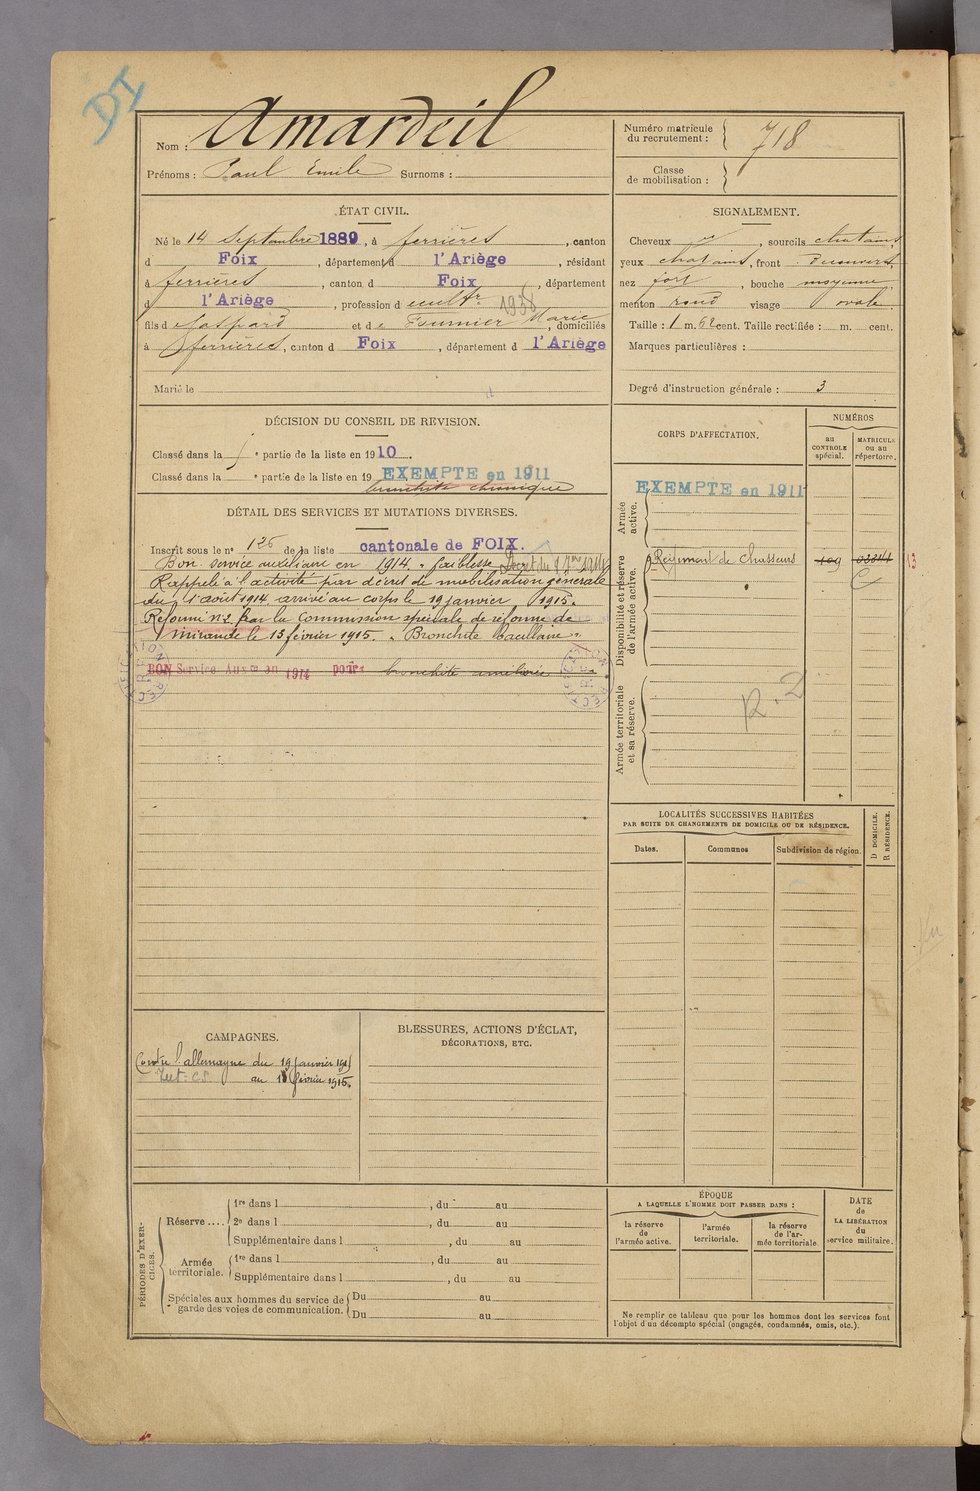 DI
Nom : Amardeil
Prénoms : Paul Emile Surnoms :
Numéro matricule du recrutement : 718
Classe de mobilisation :
ÉTAT CIVIL.
Né le 14 Septembre 1889, à ferrières, canton
d Foix, département d l'Ariège, résidant
à ferrières, canton d Foix, département
d l'Ariège, profession d cultr 1938
fils d Gaspard et de Fournier Marie, domiciliés
à ferrières, canton d Foix, département d l'Ariège
Marié le
SIGNALEMENT.
Cheveux , sourcils chatains
yeux chatains, front Découvert
nez fort, bouche moyenne
menton rond visage ovale
Taille : 1 m. 62 cent. Taille rectifiée : m. cent.
Marques particulières :
Degré d'instruction générale : 3
DÉCISION DU CONSEIL DE REVISION.
Classé dans la e partie de la liste en 1910.
Classé dans la e partie de la liste en 19 EXEMPTE en 1911
bronchite chronique
DÉTAIL DES SERVICES ET MUTATIONS DIVERSES.
Inscrit sous le no 126 de la liste cantonale de FOIX.
Bon service auxiliaire en 1914. " faiblesse Décret du 9 7bre 1914
Rappelé à l'activité par décret de mobilisation générale
du 1 août 1914 arrivé au corps le 19 janvier 1915.
Réformé n°2 par la Commission spéciale de réforme de
mirande le 13 février 1915. " Bronchite bacillaire ".
BON Service Auxre en 1914 pour: bronchite améliorée
CORPS D'AFFECTATION.
NUMÉROS
au CONTROLE spécial.
MATRICULE ou au répertoire.
Armée active.
EXEMPTE en 1911
Disponibilité et réserve de l'armée active.
Régiment de Chasseurs
13
Armée territoriale et sa réserve.
R. 2
LOCALITÉS SUCCESSIVES HABITÉES
PAR SUITE DE CHANGEMENTS DE DOMICILE OU DE RÉSIDENCE.
Dates.
Communes
Subdivision de région.
D DOMICILE.
R RÉSIDENCE.
CAMPAGNES.
Contre l'allemagne du 19 janvier 1915
au 13 février 1915.
BLESSURES, ACTIONS D'ÉCLAT,
DÉCORATIONS, ETC.
PÉRIODES D'EXERCICES.
Réserve....
1re dans l , du au
2e dans l , du au
Supplémentaire dans l , du au
Armée territoriale.
1re dans l , du au
Supplémentaire dans l , du au
Spéciales aux hommes du service de garde des voies de communication.
Du au
Du au
ÉPOQUE
A LAQUELLE L'HOMME DOIT PASSER DANS :
la réserve de l'armée active.
l'armée territoriale.
la réserve de l'armée territoriale.
DATE de LA LIBÉRATION du service militaire.
Ne remplir ce tableau que pour les hommes dont les services font
l'objet d'un décompte spécial (engagés, condamnés, omis, etc.).